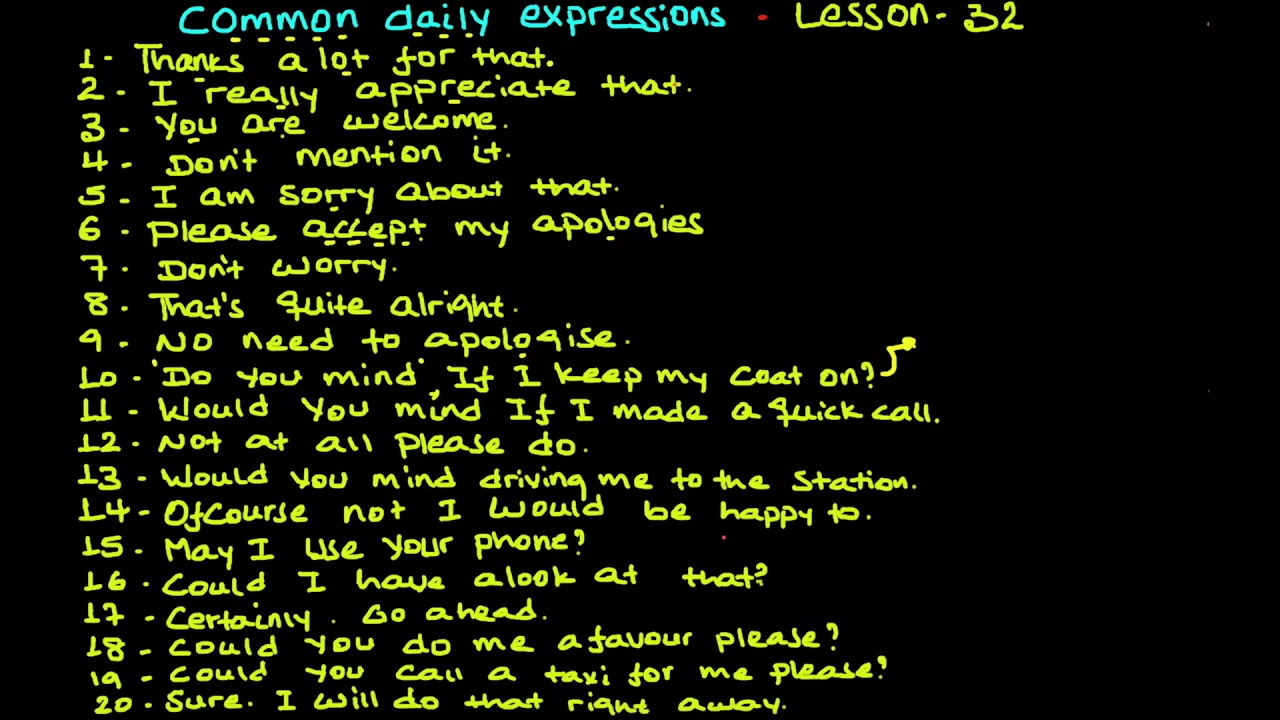 Common daily expressions • Lesson-32
1- Thanks a lot for that.
2- I really appreciate that.
3- You are welcome.
4- Don't mention it.
5- I am sorry about that.
6- Please accept my apologies
7- Don't worry.
8- That's quite alright.
9- No need to apologise.
10- "Do you mind", If I keep my coat on?
11- Would you mind If I made a quick call.
12- Not at all please do.
13- Would you mind driving me to the station.
14- Ofcourse not I would be happy to.
15- May I use your phone?
16- Could I have alook at that?
17- Certainly. Go ahead.
18- Could you do me a favour please?
19- Could you call a taxi for me please?
20- Sure. I will do that right away.